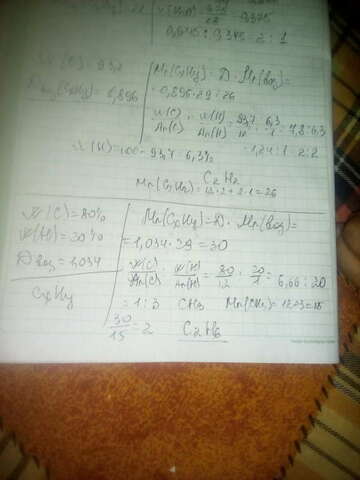 0,0945 : 9,375 = 2 : 1
W(C) = 93,7
D воз(CxHy) = 0,896
W(H) = 100 - 93,7 = 6,3%
Mr(CxHy) = D · Mr(воз) =
= 0,896 · 29 = 26
W(C)/Ar(C) : W(H)/Ar(H) = 93,7/12 : 6,3/1 = 7,8 : 6,3
= 1,24 : 1 = 2 : 2
C2H2
Mr(C2H2) = 12 · 2 + 2 · 1 = 26
W(C) = 80%
W(H) = 20%
D воз = 1,034
CxHy
Mr(CxHy) = D · Mr(воз) =
= 1,034 · 29 = 30
W(C)/Ar(C) : W(H)/Ar(H) = 80/12 : 20/1 = 6,66 : 20
= 1 : 3 CH3 Mr(CH3) = 12+3 = 15
30/15 = 2 C2H6